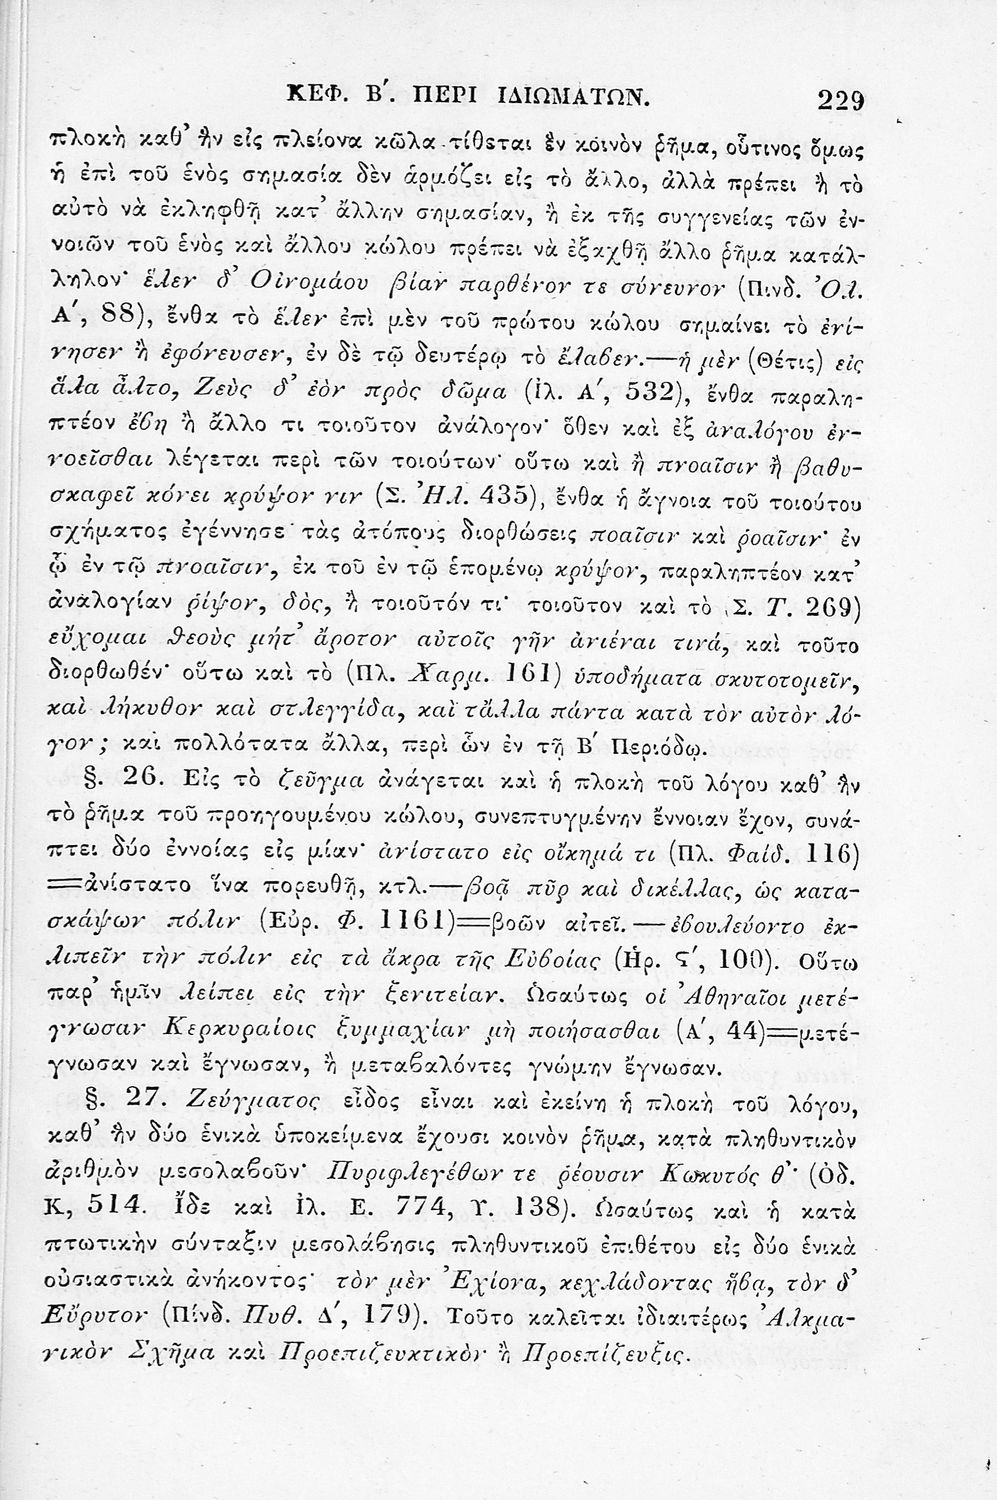 ΚΕΦ. Β΄. ΠΕΡΙ ΙΔΙΩΜΑΤΩΝ. 229
πλοκὴ καθ’ ἣν εἰς πλείονα κῶλα τίθεται ἓν κοινὸν ῥῆμα, οὗτινος ὅμως
ἡ ἐπὶ τοῦ ἑνὸς σημασία δὲν ἁρμόζει εἰς τὸ ἄλλο, ἀλλὰ πρέπει ἢ τὸ
αὐτὸ νὰ ἐκληφθῇ κατ’ ἄλλην σημασίαν, ἢ ἐκ τῆς συγγενείας τῶν ἐν-
νοιῶν τοῦ ἑνὸς καὶ ἄλλου κώλου πρέπει νὰ ἐξαχθῇ ἄλλο ῥῆμα κατάλ-
ληλον· ἕλεν δ’ Οἰνομάου βίαν παρθένον τε σύνευνον (Πινδ. Ὀλ.
Α΄, 88), ἔνθα τὸ ἕλεν ἐπὶ μὲν τοῦ πρώτου κώλου σημαίνει τὸ ἐνί-
νησεν ἢ ἐφόνευσεν, ἐν δὲ τῷ δευτέρῳ τὸ ἔλαβεν.—ἡ μὲν (Θέτις) εἰς
ἅλα ἆλτο, Ζεὺς δ’ ἑὸν πρὸς δῶμα (ἰλ. Α΄, 532), ἔνθα παραλη-
πτέον ἔβη ἢ ἄλλο τι τοιοῦτον ἀνάλογον· ὅθεν καὶ ἐξ ἀναλόγου ἐν-
νοεῖσθαι λέγεται περὶ τῶν τοιούτων· οὕτω καὶ ἢ πνοαῖσιν ἢ βαθυ-
σκαφεῖ κόνει κρύψον νιν (Σ. Ἠλ. 435), ἔνθα ἡ ἄγνοια τοῦ τοιούτου
σχήματος ἐγέννησε τὰς ἀτόπους διορθώσεις ποαῖσιν καὶ ῥοαῖσιν· ἐν
ᾧ ἐν τῷ πνοαῖσιν, ἐκ τοῦ ἐν τῷ ἑπομένῳ κρύψον, παραληπτέον κατ’
ἀναλογίαν ῥίψον, δὸς, ἢ τοιοῦτόν τι· τοιοῦτον καὶ τὸ (Σ. Τ. 269)
εὔχομαι θεοὺς μήτ’ ἄροτον αὐτοῖς γῆν ἀνιέναι τινά, καὶ τοῦτο
διορθωθέν· οὕτω καὶ τὸ (Πλ. Χαρμ. 161) ὑποδήματα σκυτοτομεῖν,
καὶ λήκυθον καὶ στλεγγίδα, καὶ τἄλλα πάντα κατὰ τὸν αὐτὸν λό-
γον; καὶ πολλότατα ἄλλα, περὶ ὧν ἐν τῇ Β΄ Περιόδῳ.
§. 26. Εἰς τὸ ζεῦγμα ἀνάγεται καὶ ἡ πλοκὴ τοῦ λόγου καθ’ ἣν
τὸ ῥῆμα τοῦ προηγουμένου κώλου, συνεπτυγμένην ἔννοιαν ἔχον, συνά-
πτει δύο ἐννοίας εἰς μίαν· ἀνίστατο εἰς οἴκημά τι (Πλ. Φαίδ. 116)
=ἀνίστατο ἵνα πορευθῇ, κτλ.—βοᾷ πῦρ καὶ δικέλλας, ὡς κατα-
σκάψων πόλιν (Εὐρ. Φ. 1161)=βοῶν αἰτεῖ.—ἐβουλεύοντο ἐκ-
λιπεῖν τὴν πόλιν εἰς τὰ ἄκρα τῆς Εὐβοίας (Ἡρ. ϛ΄, 100). Οὕτω
παρ’ ἡμῖν λείπει εἰς τὴν ξενιτείαν. Ὡσαύτως οἱ Ἀθηναῖοι μετέ-
γνωσαν Κερκυραίοις ξυμμαχίαν μὴ ποιήσασθαι (Α΄, 44)=μετέ-
γνωσαν καὶ ἔγνωσαν, ἢ μεταβαλόντες γνώμην ἔγνωσαν.
§. 27. Ζεύγματος εἶδος εἶναι καὶ ἐκείνη ἡ πλοκὴ τοῦ λόγου,
καθ’ ἣν δύο ἑνικὰ ὑποκείμενα ἔχουσι κοινὸν ῥῆμα, κατὰ πληθυντικὸν
ἀριθμὸν μεσολαβοῦν· Πυριφλεγέθων τε ῥέουσιν Κωκυτός θ’· (Ὀδ.
Κ, 514. Ἴδε καὶ Ἰλ. Ε. 774, Υ. 138). Ὡσαύτως καὶ ἡ κατὰ
πτωτικὴν σύνταξιν μεσολάβησις πληθυντικοῦ ἐπιθέτου εἰς δύο ἑνικὰ
οὐσιαστικὰ ἀνήκοντος· τὸν μὲν Ἐχίονα, κεχλάδοντας ἥβᾳ, τὸν δ’
Εὔρυτον (Πίνδ. Πυθ. Δ΄, 179). Τοῦτο καλεῖται ἰδιαιτέρως Ἀλκμα-
νικὸν Σχῆμα καὶ Προεπιζευκτικὸν ἢ Προεπίζευξις.